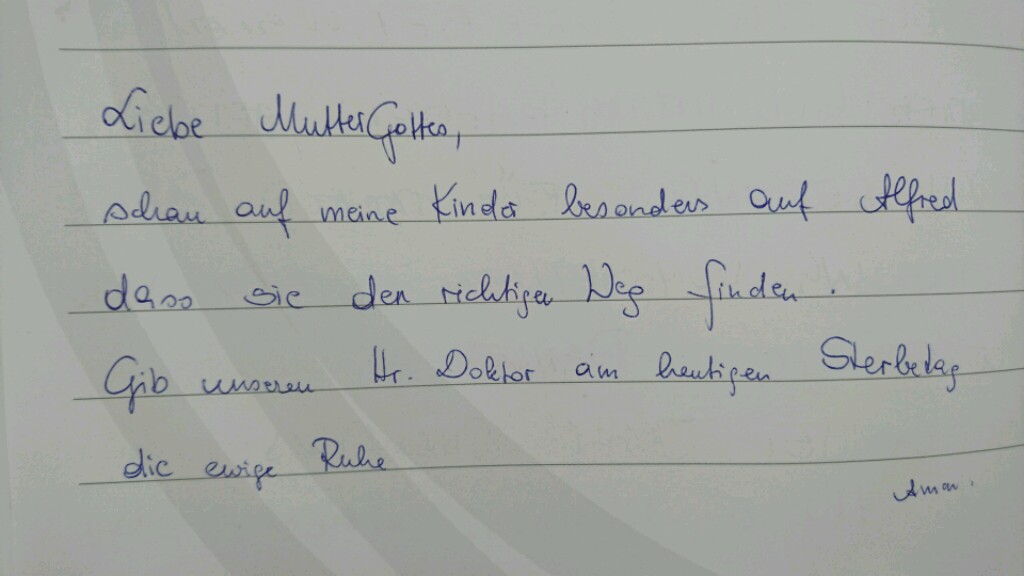 Liebe Mutter Gottes,
schau auf meine Kinder besonders auf Alfred
dass sie den richtigen Weg finden.
Gib unseren Hr. Doktor am heutigen Sterbetag
die ewige Ruhe
Amen.